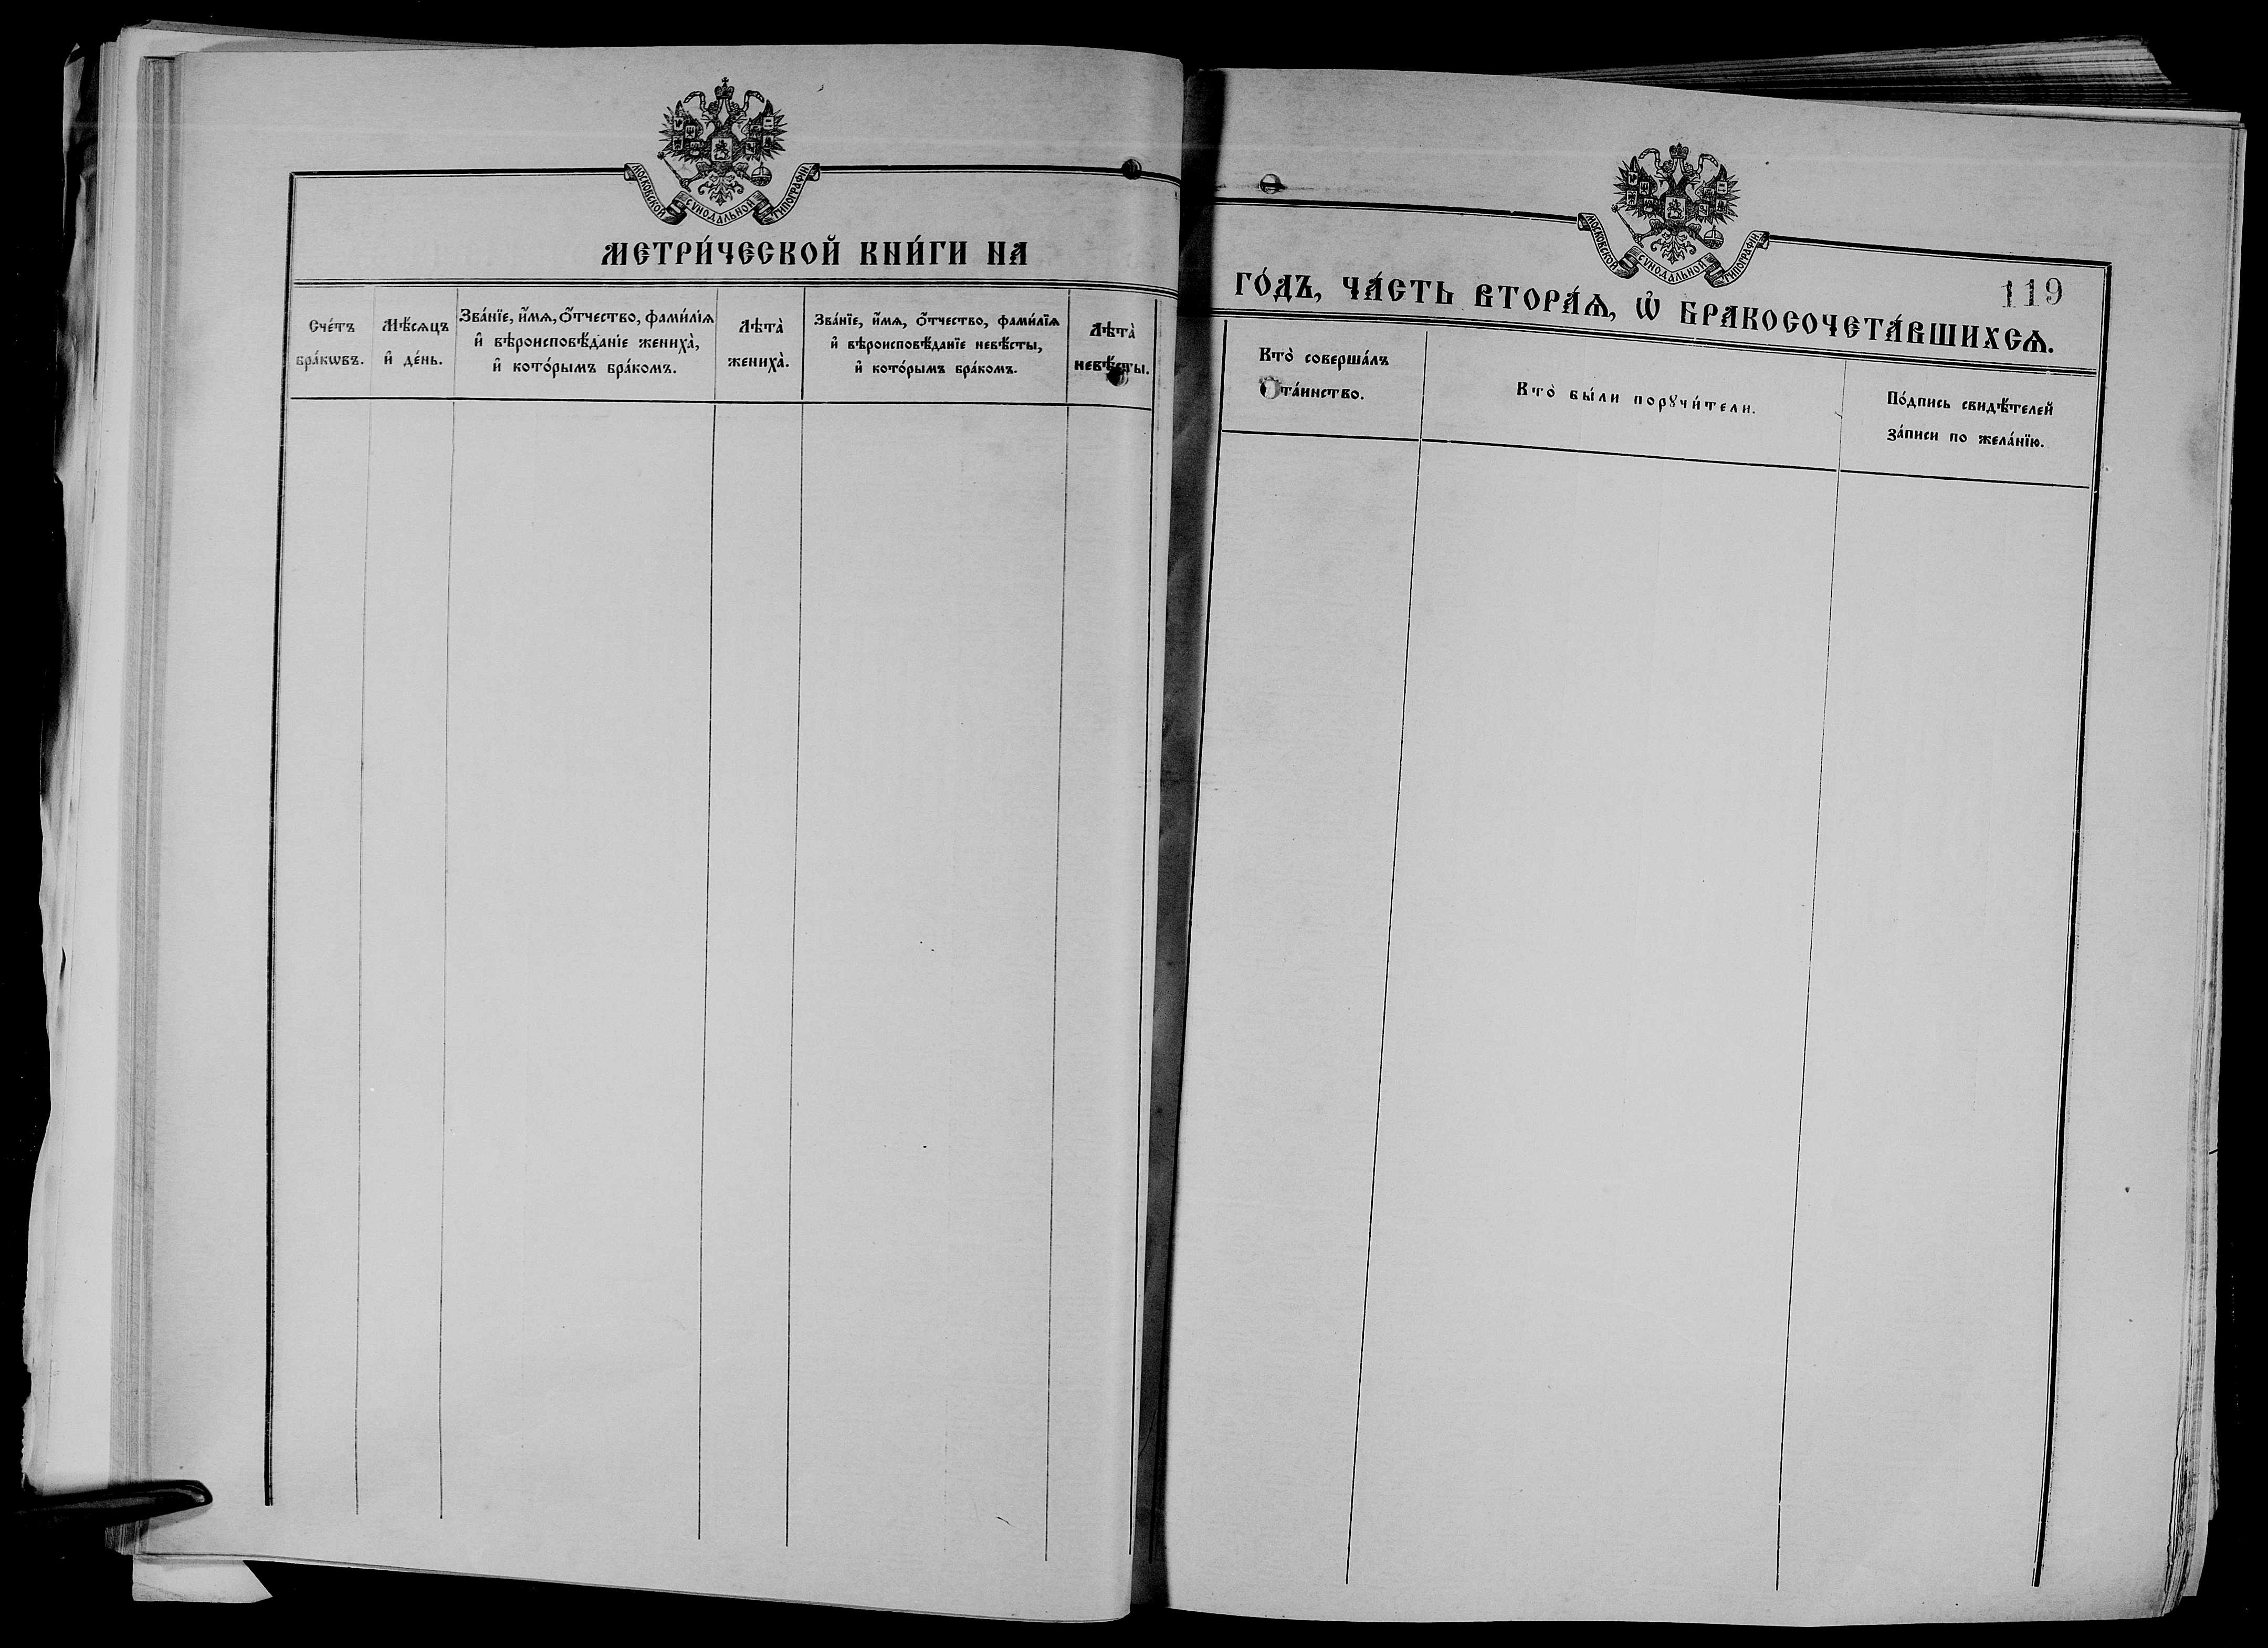 МОСКОВСКОЙ СѴНОДАЛЬНОЙ ТИПОГРАФІИ.
МЕТРИ́ЧЕСКОЙ КНИ́ГИ НА
Сче́тъ
бра́кѡвъ.
Мѣ́сѧцъ
и҆ де́нь.
Зва́нїе, и҆́мѧ, ѻ҆́тчество, фами́лїѧ
и҆ вѣроисповѣ́данїе жениха̀,
и҆ кото́рымъ бра́комъ.
Лѣта̀
жениха̀.
Зва́нїе, и҆́мѧ, ѻ҆́тчество, фами́лїѧ
и҆ вѣроисповѣ́данїе невѣ́сты,
и҆ кото́рымъ бра́комъ.
Лѣта̀
невѣ́сты.
МОСКОВСКОЙ СѴНОДАЛЬНОЙ ТИПОГРАФІИ.
119
ГО́ДЪ, ЧА́СТЬ ВТОРА́Ѧ, Ѽ БРАКОСОЧЕТА́ВШИХСѦ.
Кто̀ соверша́лъ
та́инство.
Кто̀ бы́ли порꙋчи́тели.
По́дпись свидѣ́телей
за́писи по жела́нїю.